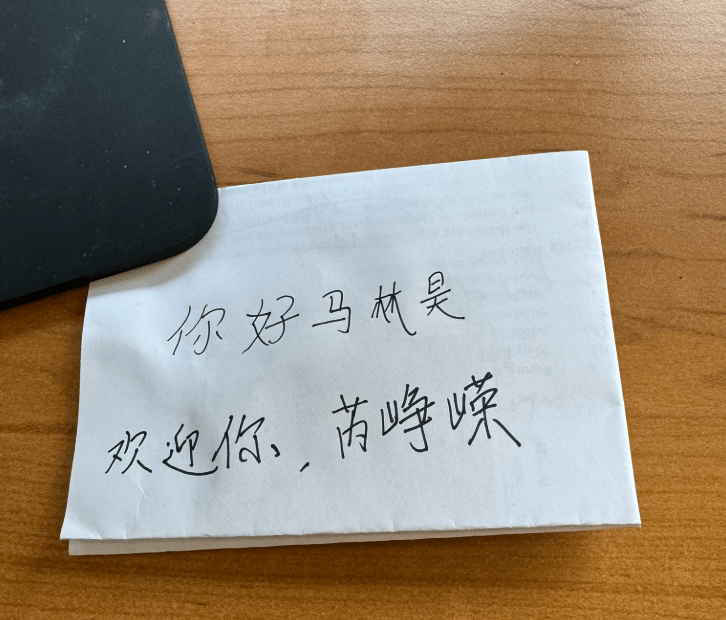 你好马林昊
欢迎你，芮峥嵘